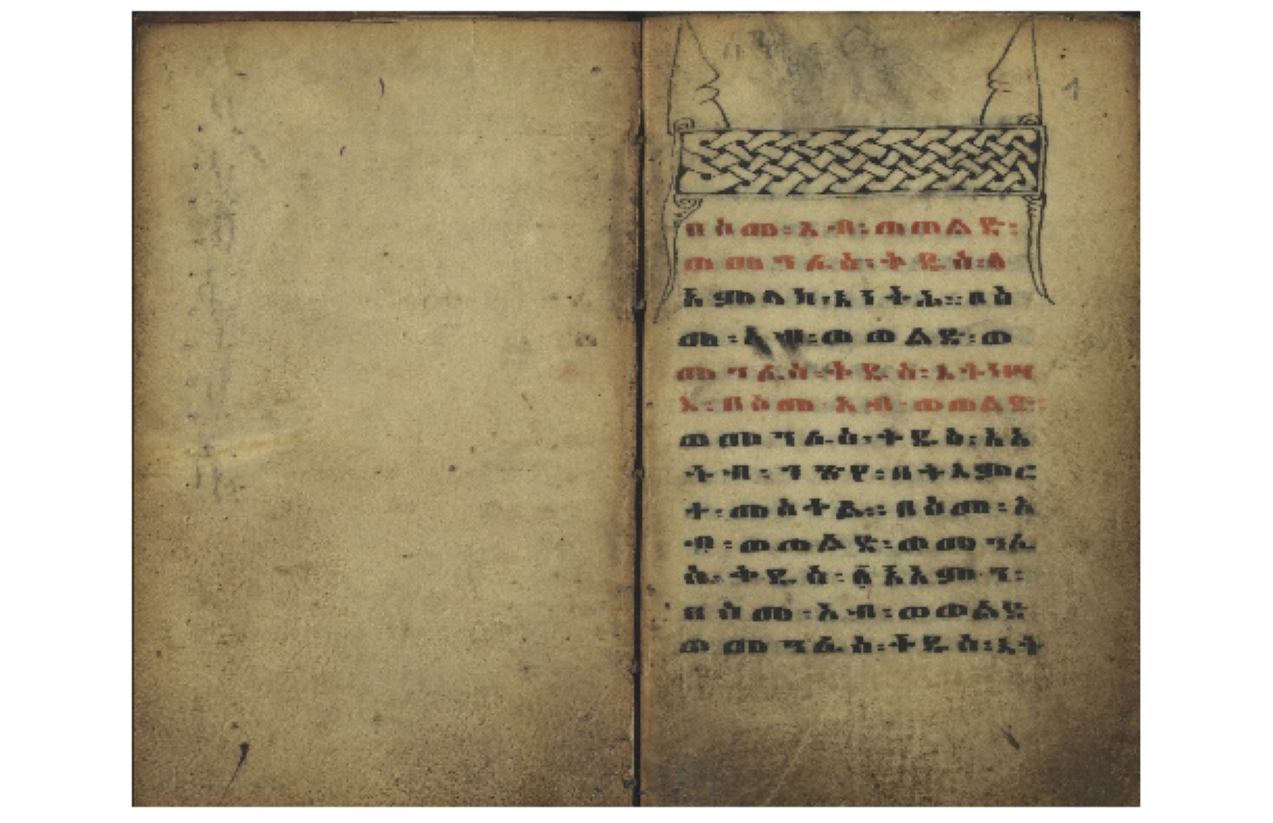 1
በስመ፡አብ፡ወወልድ፡
ወመንፈስ፡ቅዱስ፡፩
አምላክ፡ በስ
መ፡አብ፡ወወልድ፡ወ
መንፈስ፡ቅዱስ፡እትነሣ
እ፡በስመ፡አብ፡ወወልድ፡
ወመንፈስ፡ቅዱስ፡አአ
ትብ፡ገጽየ፡በትእምር
ተ፡መስቀል።በስመ፡አ
ብ፡ወወልድ፡ወመንፈ
ስ፡ቅዱስ፡ አአምን፡
በስመ፡አብ፡ወወልድ
ወመንፈስ፡ቅዱስ፡እት